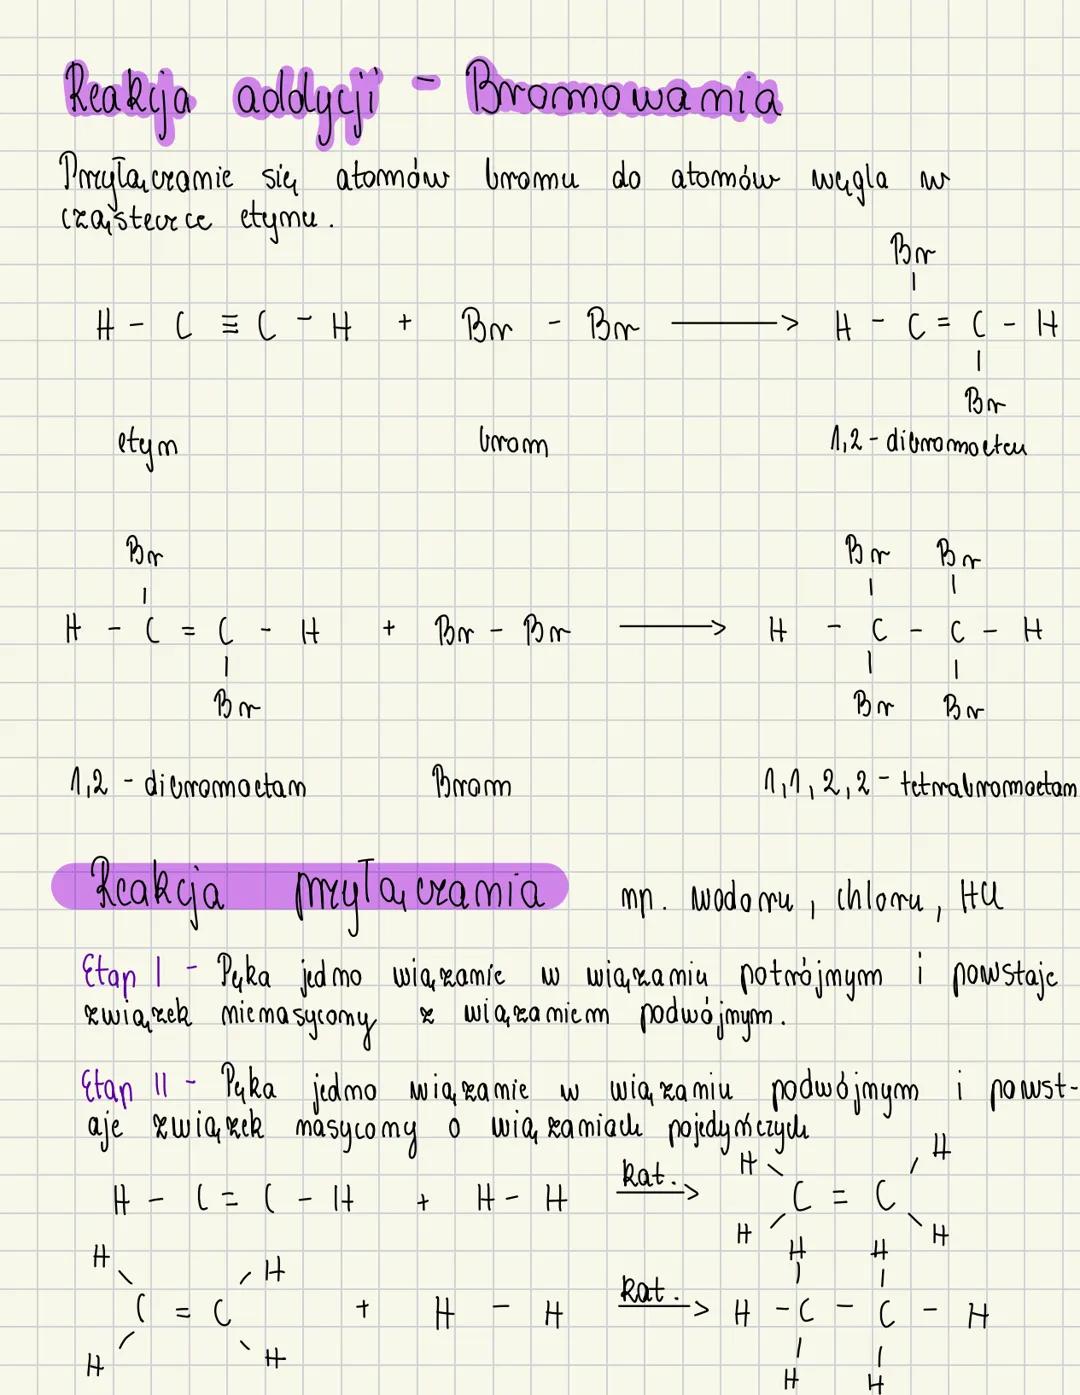 Reakcja addycji - Bromowania
Przyłączanie się atomów bromu do atomów węgla w
cząsteczce etynu.
Br
|
H - C ≡ C - H + Br - Br ⟶ H - C = C - H
|
Br
etyn brom 1,2 - dibromoeten
Br Br Br
| | |
H - C = C - H + Br - Br ⟶ H - C - C - H
| | |
Br Br Br
1,2 - dibromoetan Brom 1,1,2,2 - tetrabromoetan
Reakcja przyłączania np. wodoru, chloru, HCl
Etap I - Pęka jedno wiązanie w wiązaniu potrójnym i powstaje
związek nienasycony z wiązaniem podwójnym.
Etap II - Pęka jedno wiązanie w wiązaniu podwójnym i powst-
aje związek nasycony o wiązaniach pojedyńczych
H H
H - C = C - H + H - H kat. ⟶ C = C
H H
H H H H
| |
C = C + H - H kat. ⟶ H - C - C - H
| |
H H H H